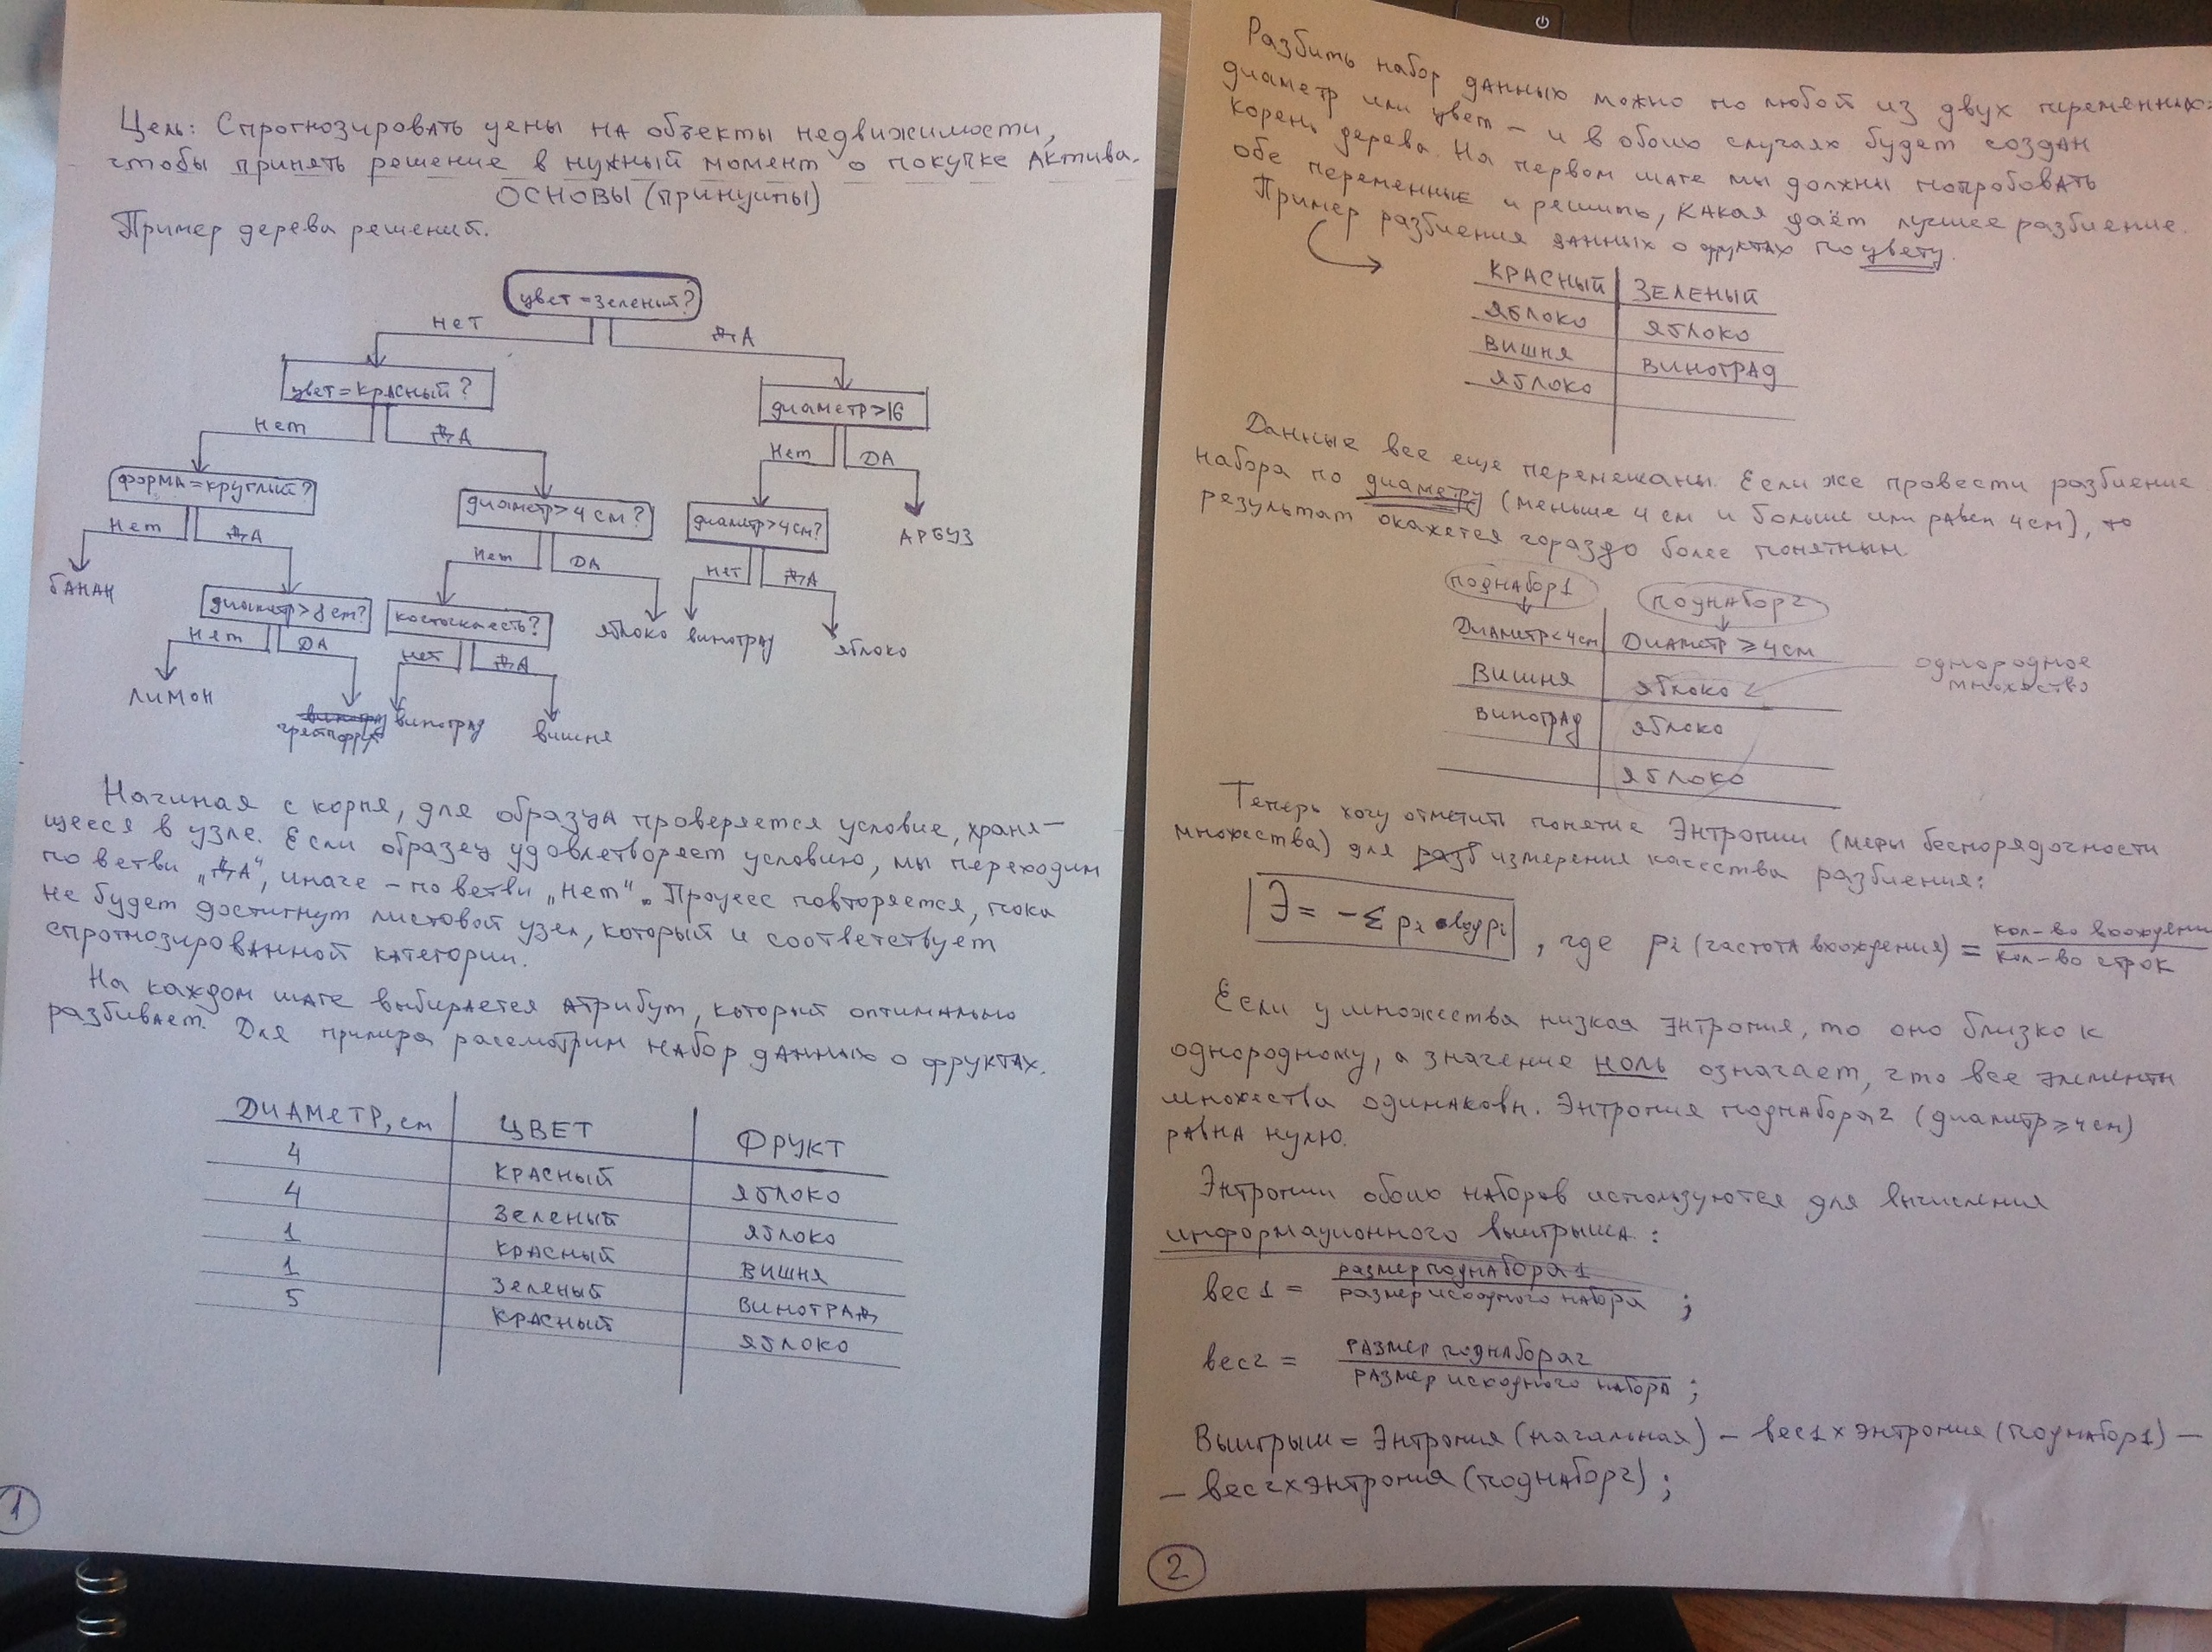 Цель: Спрогнозировать цены на объекты недвижимости,
чтобы принять решение в нужный момент о покупке Актива.
ОСНОВЫ (принципы)
Пример дерева решений.
цвет = зеленый?
нет
ДА
цвет = красный?
диаметр > 16
нет
ДА
нет
ДА
форма = круглый?
диаметр > 4 см?
диаметр > 4 см?
АРБУЗ
нет
ДА
нет
ДА
нет
ДА
БАНАН
диаметр > 8 см?
косточка есть?
яблоко
виноград
яблоко
нет
ДА
нет
ДА
ЛИМОН
грейпфрут
виноград
вишня
Начиная с корня, для образца проверяется условие, храня-
щееся в узле. Если образец удовлетворяет условию, мы переходим
по ветви „ДА“, иначе – по ветви „нет“. Процесс повторяется, пока
не будет достигнут листовой узел, который и соответствует
спрогнозированной категории.
На каждом шаге выбирается атрибут, который оптимально
разбивает. Для примера рассмотрим набор данных о фруктах.
ДИАМЕТР, см ЦВЕТ ФРУКТ
4 КРАСНЫЙ ЯБЛОКО
4 ЗЕЛЕНЫЙ ЯБЛОКО
1 КРАСНЫЙ ВИШНЯ
1 ЗЕЛЕНЫЙ ВИНОГРАД
5 КРАСНЫЙ ЯБЛОКО
1
Разбить набор данных можно по любой из двух переменных:
диаметр или цвет – и в обоих случаях будет создан
корень дерева. На первом шаге мы должны попробовать
обе переменные и решить, какая даёт лучшее разбиение.
Пример разбиения данных о фруктах по цвету.
КРАСНЫЙ ЗЕЛЕНЫЙ
ЯБЛОКО ЯБЛОКО
ВИШНЯ ВИНОГРАД
ЯБЛОКО
Данные все еще перемешаны. Если же провести разбиение
набора по диаметру (меньше 4 см и больше или равен 4 см), то
результат окажется гораздо более понятным.
поднабор 1
поднабор 2
Диаметр < 4 см Диаметр ≥ 4 см
Вишня яблоко
виноград яблоко
яблоко
однородное
множество
Теперь хочу отметить понятие Энтропии (меры беспорядочности
множества) для разб измерения качества разбиения:
Э = – Σ pi • log pi , где pi (частота вхождения) = кол-во вхождени / кол-во строк
Если у множества низкая энтропия, то оно близко к
однородному, а значение ноль означает, что все элементы
множества одинаковы. Энтропия поднабора 2 (диаметр ≥ 4 см)
равна нулю.
Энтропии обоих наборов используются для вычисления
информационного выигрыша:
вес 1 = размер поднабора 1 / размер исходного набора ;
вес 2 = размер поднабора 2 / размер исходного набора ;
Выигрыш = Энтропия (начальная) – вес 1 × энтропия (поднабор 1) –
– вес 2 × энтропия (поднабор 2) ;
2